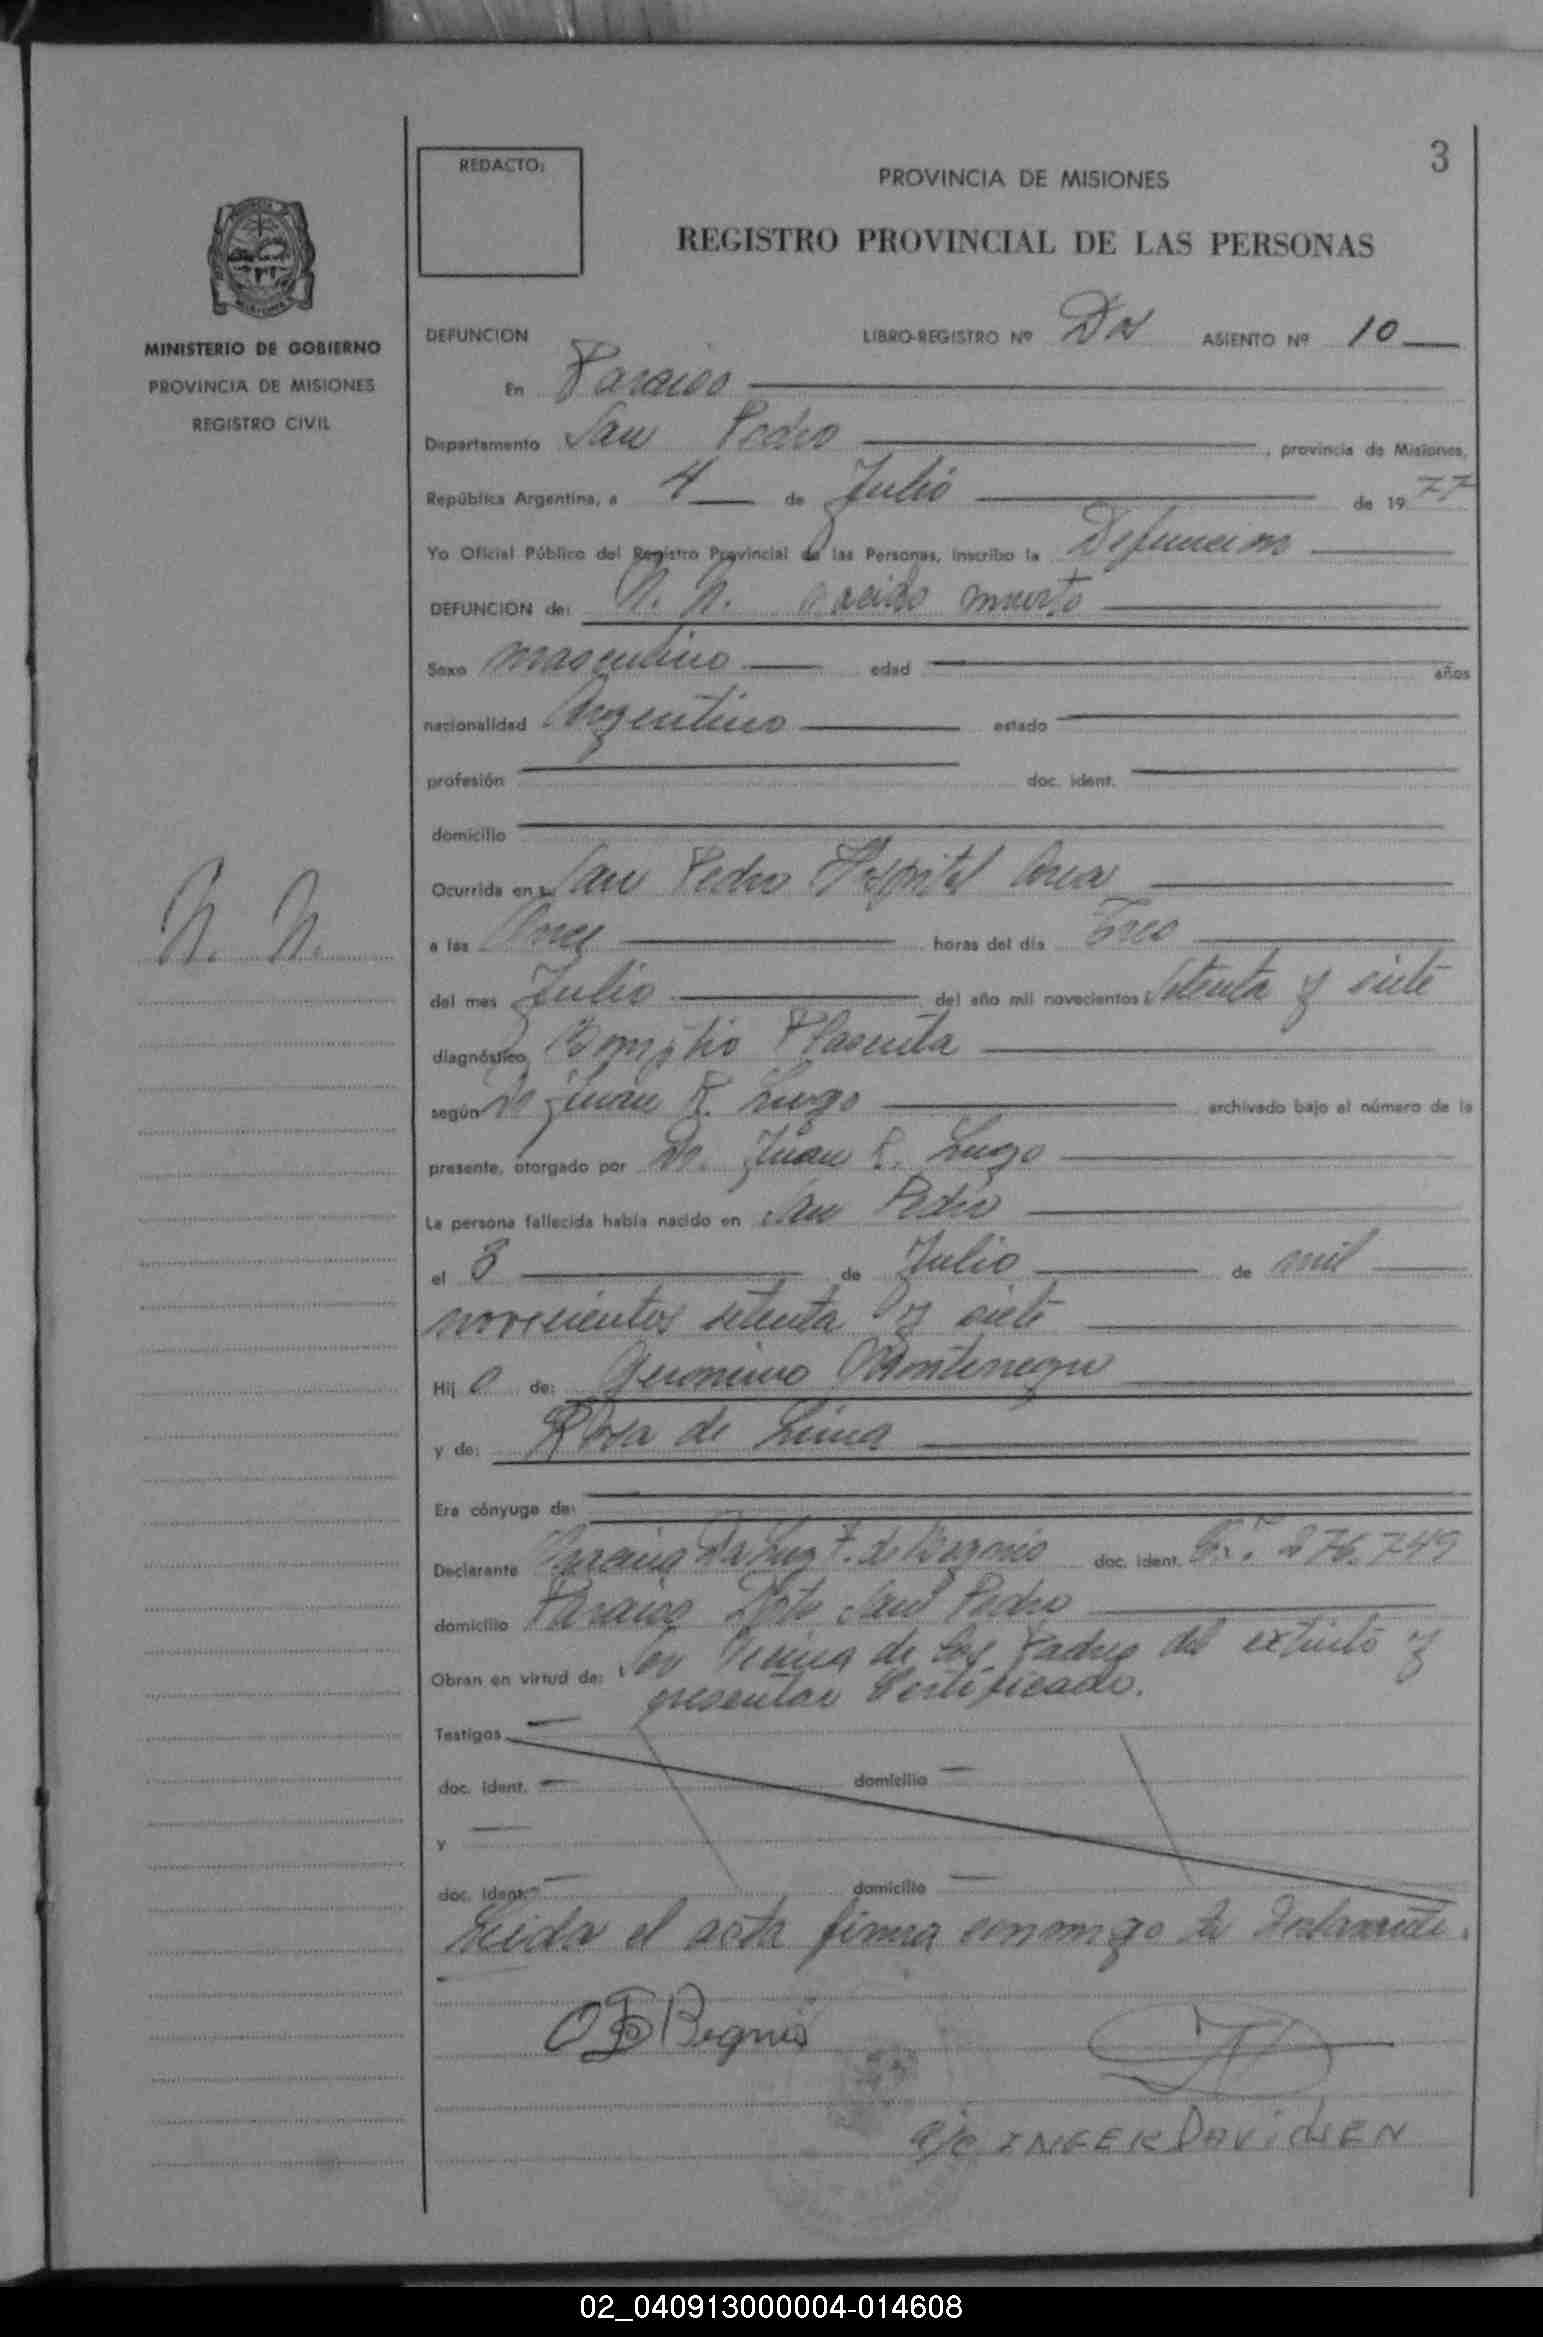 3
REDACTO:
PROVINCIA DE MISIONES
REGISTRO PROVINCIAL DE LAS PERSONAS
MINISTERIO DE GOBIERNO
PROVINCIA DE MISIONES
REGISTRO CIVIL
DEFUNCION LIBRO-REGISTRO Nº Dos ASIENTO Nº 10
En Paraiso
Departamento San Pedro, provincia de Misiones,
República Argentina, a 4 de Julio de 1977
Yo Oficial Público del Registro Provincial de las Personas, inscribo la Defuncion
DEFUNCION de: N. N. nacido muerto
Sexo masculino edad años
nacionalidad Argentino estado
profesión doc. ident.
domicilio
Ocurrida en San Pedro Hospital Area
N. N.
a las Once horas del día Tres
del mes Julio del año mil novecientos Setenta y siete
diagnóstico Placenta
según Dr Juan R. Lugo archivado bajo el número de la
presente, otorgado por Dr. Juan R. Lugo
La persona fallecida había nacido en San Pedro
el 3 de Julio de mil
novecientos setenta y siete
Hijo de: Geronimo Montenegro
y de: Rosa de Lima
Era cónyuge de:
Declarante Da Luz F. de doc. ident. 276.749
domicilio Paraiso Dpto San Pedro
Obran en virtud de: Ser Vecina de los Padres del extinto y
presentar Certificado.
Testigos
doc. ident. domicilio
y
doc. ident. domicilio
Leida el acta firma conmigo la declarante.
a/c INGER DAVIDSEN
02_040913000004-014608